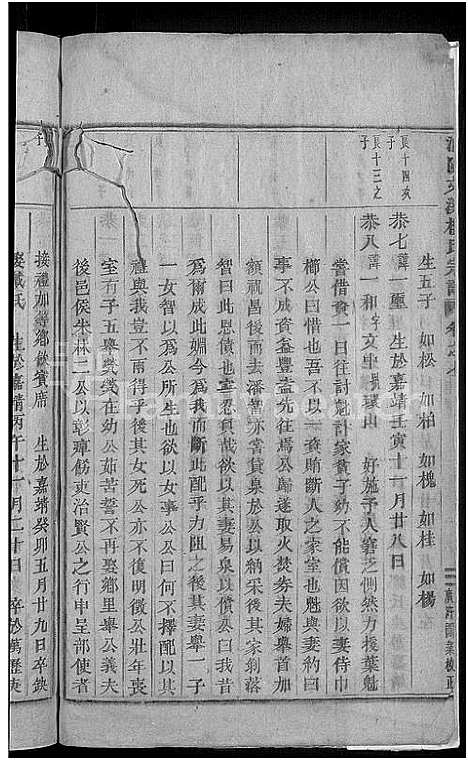 生五子 如松 如柏 如槐 如桂 如楊
良十四友
子
恭七 諱一璽 生於嘉靖壬寅十一月廿八日
良十三之
子
恭八 諱一和 字文中 號環山 好施予人窘乏側然力援葉魁
嘗借貲一日抄計魁計家貧子幼不能償因欲以妻侍巾
櫛公曰惜乎吾不以一貲賄斷人之家室也魁與妻約曰
事不成資罄盍先往焉公歸遂取火焚券夫婦舉首加
額祝昌後而去潘智亦嘗貸泉於公以納采後其家剝落
智曰此恩債也宜忍負哉欲以其妻易泉以償公曰我昔
為爾成此姻今為我而斷此配乎力阻之後其妻舉一子
一女智以為公所生也欲以女事公公曰何不擇配以其
禮與我豈不兩得乎後其女死公亦不復明徵公壯年喪
室有子五舉煢煢在幼公茹苦誓不再娶鄉里舉公義夫
後邑侯朱林二公以彰瑋飭吏治賢公之行申呈部使者
接禮加尊鄉飲賓席 生於嘉靖癸卯五月廿九日卒缺
娶戴氏 生於嘉靖丙午十一月二十日 卒於萬歷庚